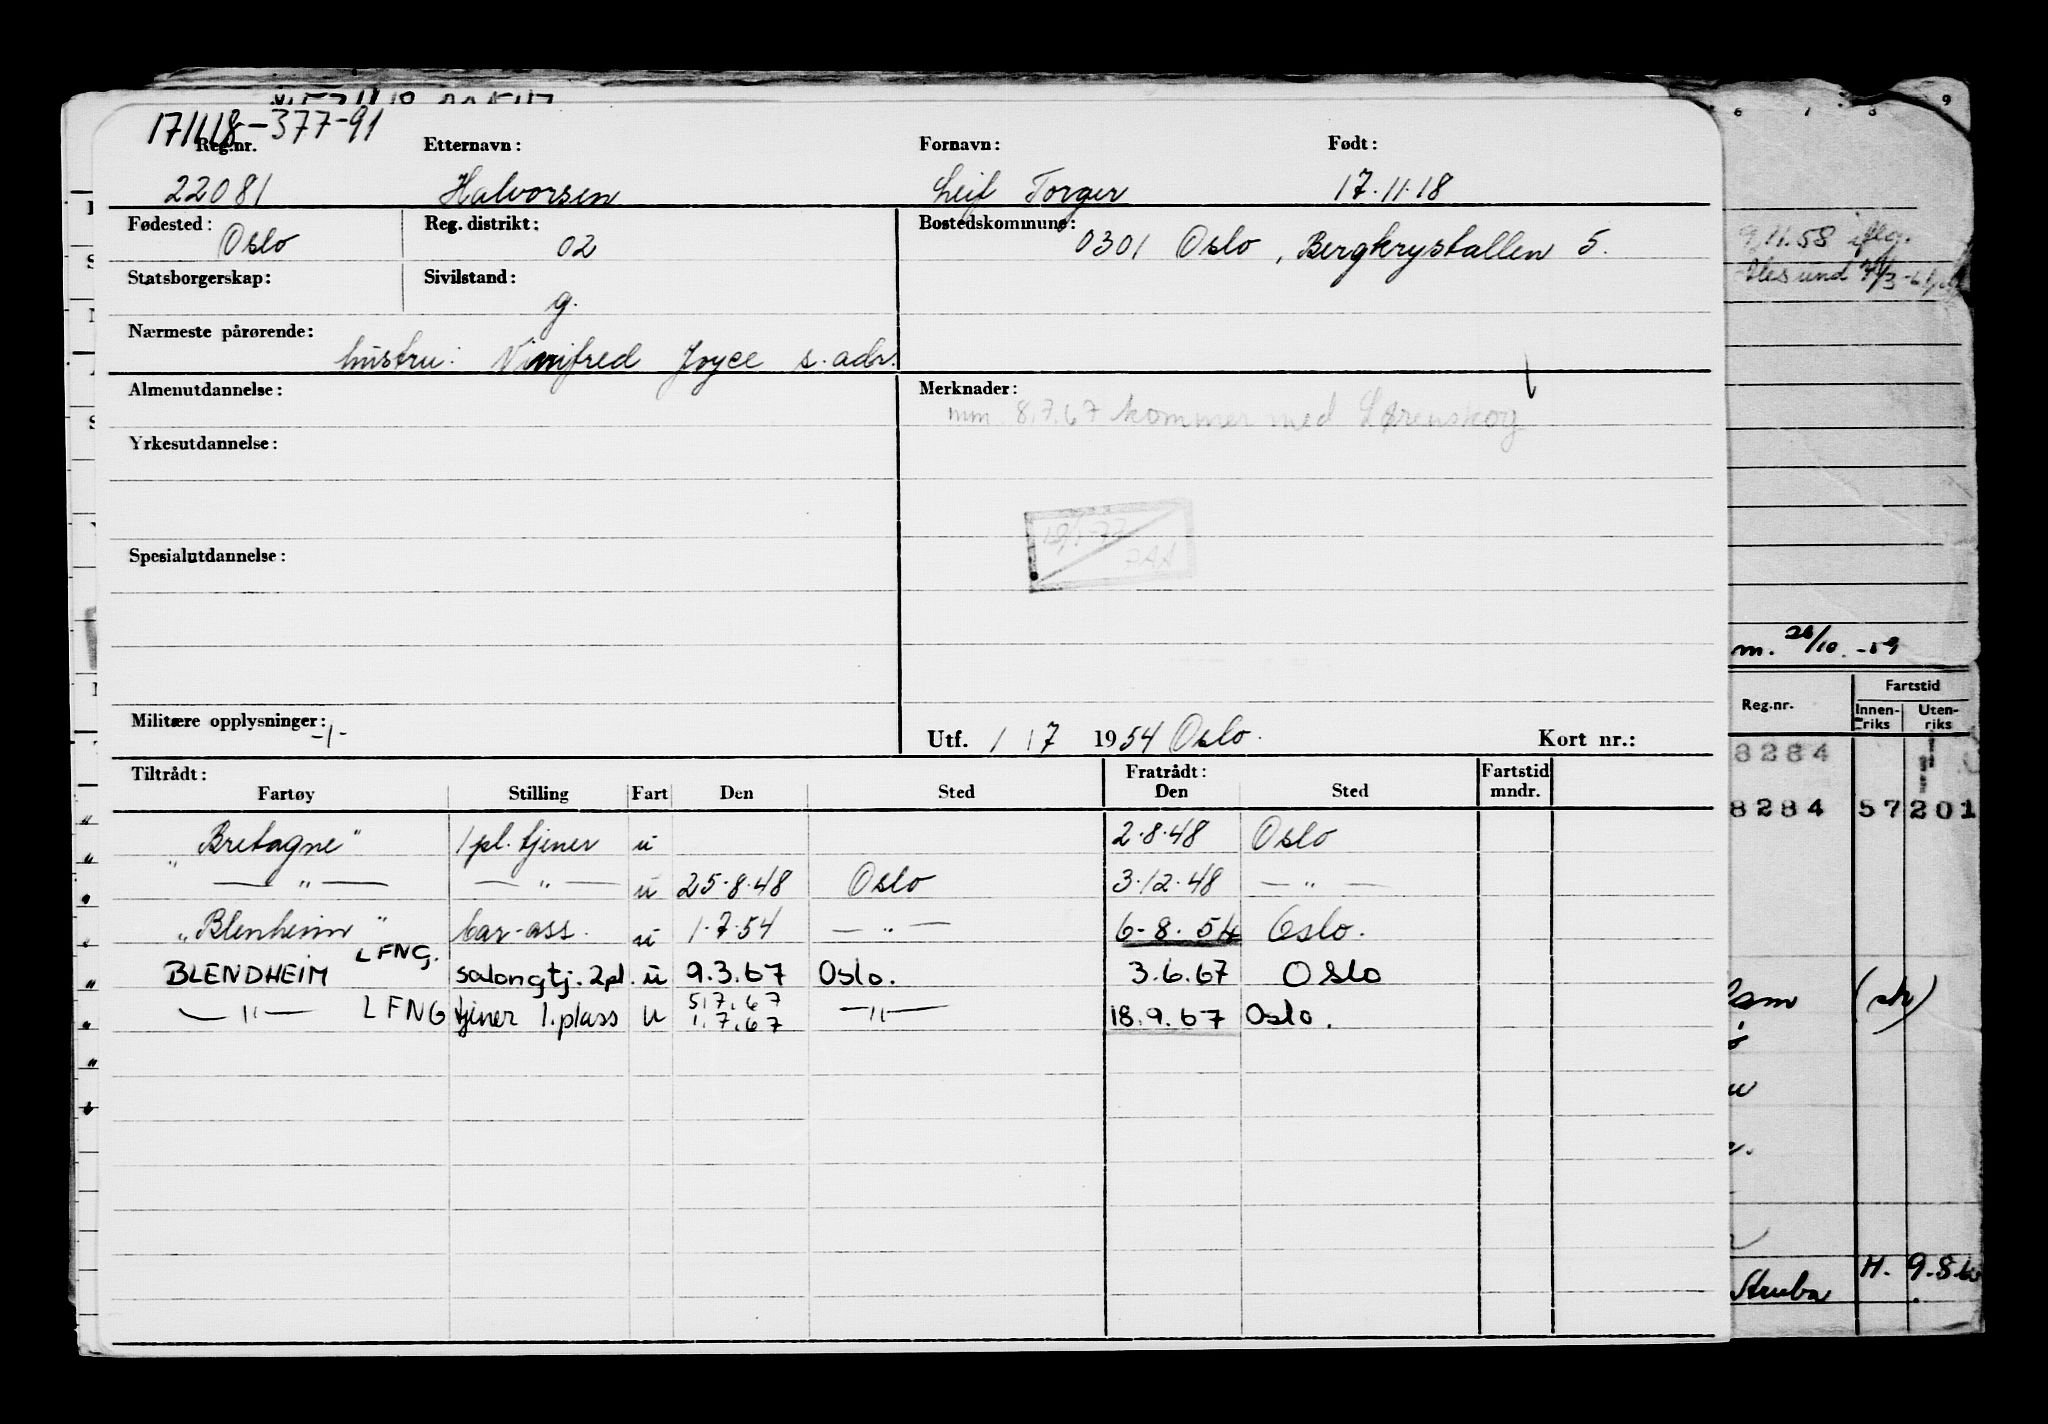 171118-377-91
Reg.nr. Etternavn: Fornavn: Født:
22081 Halvorsen Leif Torger 17.11.18
Fødested: Oslo Reg. distrikt: 02 Bostedskommune: 0301 Oslo, Bergkrystallen 5.
Statsborgerskap: Sivilstand: g.
Nærmeste pårørende: hustru: Vinnifred Joyce s. adr.
Almenutdannelse: Merknader:
mm. 8.7.67 kommer med Lørenskog
Yrkesutdannelse:
Spesialutdannelse:
Militære opplysninger: -/-
Utf. 1 / 7 1954 Oslo. Kort nr.:
Tiltrådt: Fratrådt: Fartstid
Fartøy Stilling Fart Den Sted Den Sted mndr.
„Bretagne" 1 pl. tjener u 2.8.48 Oslo
— " — — " — u 25.8.48 Oslo 3.12.48 — " —
„Blenheim" bar-ass. u 1.7.54 — " — 6-8.54 Oslo.
BLENDHEIM LFNG. salongtj. 2pl. u 9.3.67 Oslo. 3.6.67 OSLO
— " — LFNG tjener 1.plass u 5.7.67 1.7.67 — " — 18.9.67 Oslo.
6 7 8 9
9.11.58 iflg.
m. 26/10-59
Reg.nr. Fartstid
Innen-riks Uten-riks
8284
8284 57 201
(sk)
Aruba H. 9.8.60